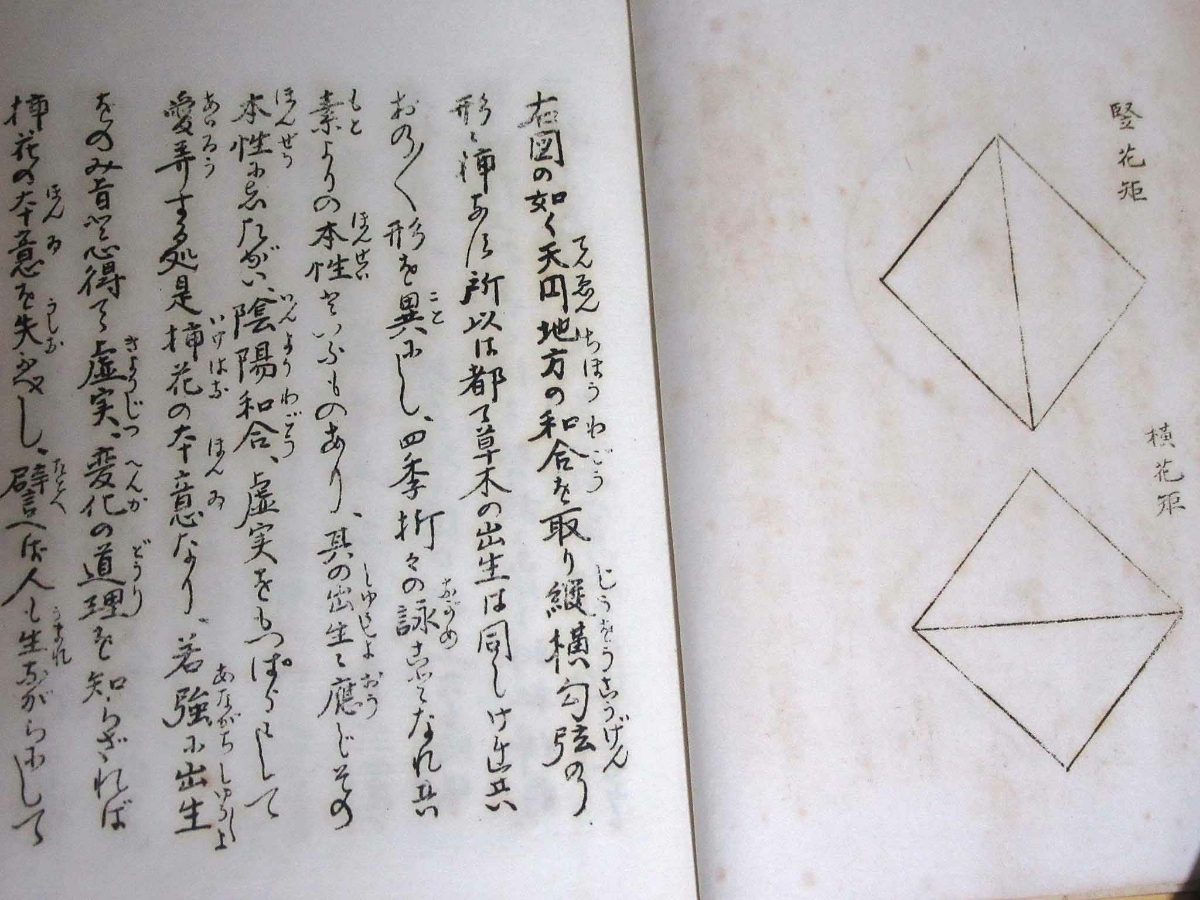 竪花矩
横花矩
右図の如く天円地方の和合を取り縦横勾弦の
形に挿ある所以は都て草木の出生は同しけれ共
おの〱形を異にし、四季折々の詠ふ なれ共
素よりの本性といふものあり、其の出生に應じその
本性にしたがい、陰陽和合、虚実をもつぱらとして
愛弄する処是挿花の本意なり、若強に出生
をのみ旨と心得て虚実、変化の道理を知らざれば
挿花の本意を失ふべし、譬へば人も生ながらにして